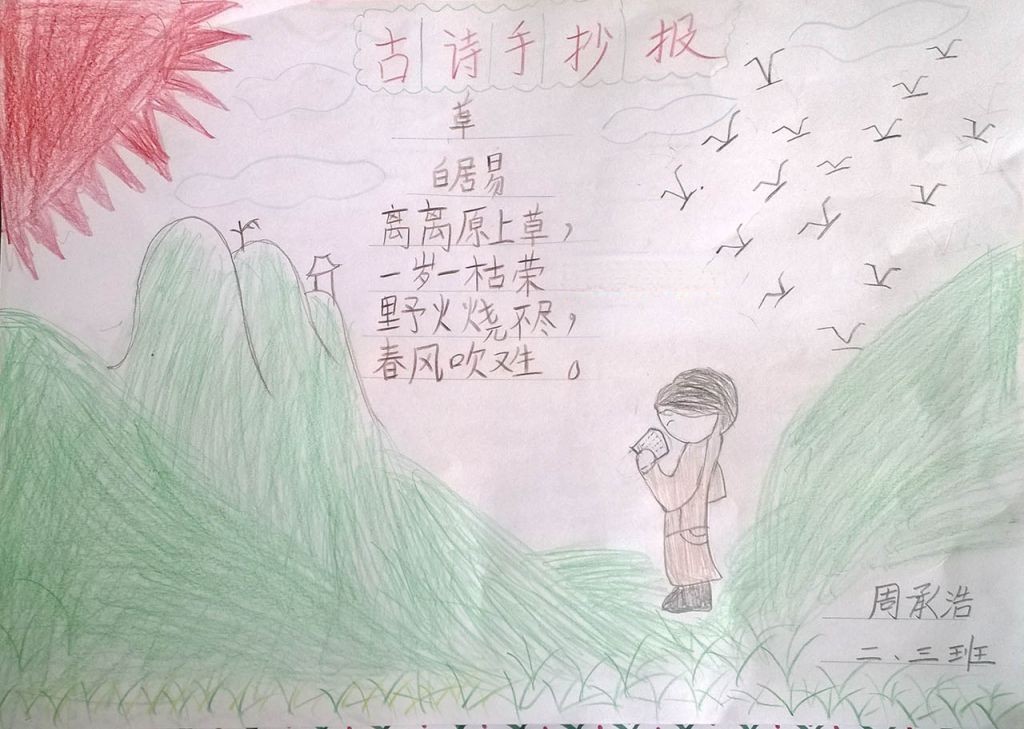 古诗手抄报
草
白居易
离离原上草，
一岁一枯荣
野火烧不尽，
春风吹又生。
周承浩
二、三班